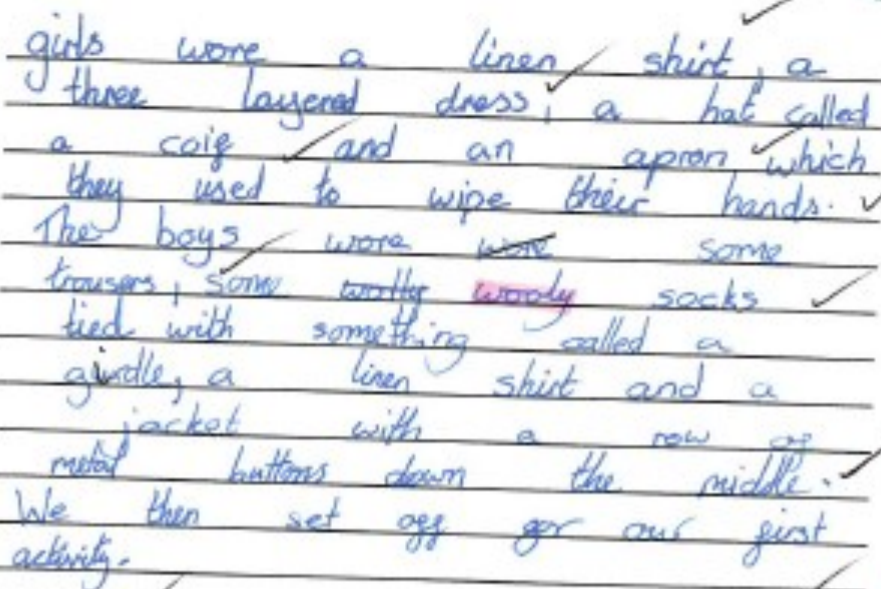 girls wore a linen shirt, a
three layered dress, a hat called
a coif and an apron which
they used to wipe their hands.
The boys wore wore some
trousers, some woolly wooly socks
tied with something called a
girdle, a linen shirt and a
jacket with a row of
metal buttons down the middle.
We then set off for our first
activity.